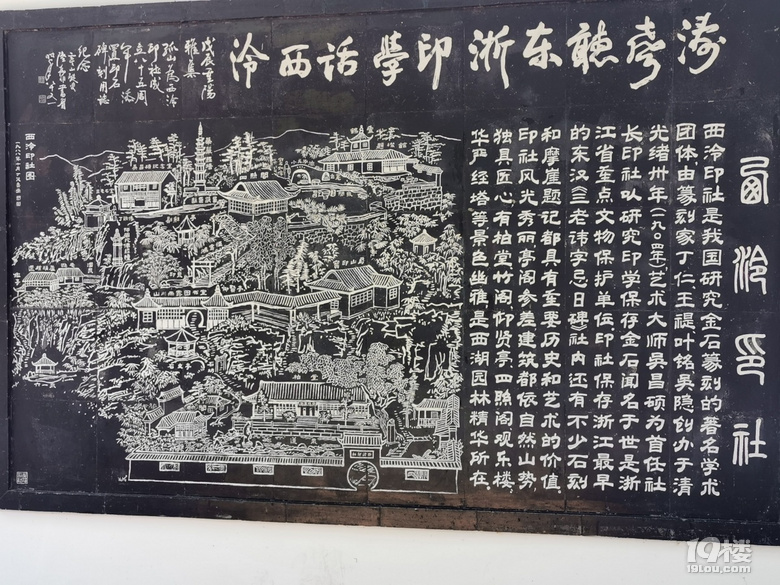 涛声聽东浙印學话西泠
西泠印社
西泠印社是我国研究金石篆刻的著名学术
团体由篆刻家丁仁王禔叶铭吴隐创办于清
光绪卅年(一九〇四年)艺术大师吴昌硕为首任社
长印社以研究印学保存金石闻名于世是浙
江省重点文物保护单位印社保存浙江最早
的东汉《三老讳字忌日碑》社内还有不少石刻
和摩崖题记都具有重要历史和艺术的价值.
印社风光秀丽亭阁参差建筑都依自然山势,
独具匠心.有柏堂竹阁仰贤亭四照阁观乐楼,
华严经塔等景色幽雅是西湖园林精华所在.
戊辰重阳
雅集
孤山为西泠
印社成
立八十五周
年添
置印石
碑刻用誌
纪念
西泠印社图
19楼
19lou.com